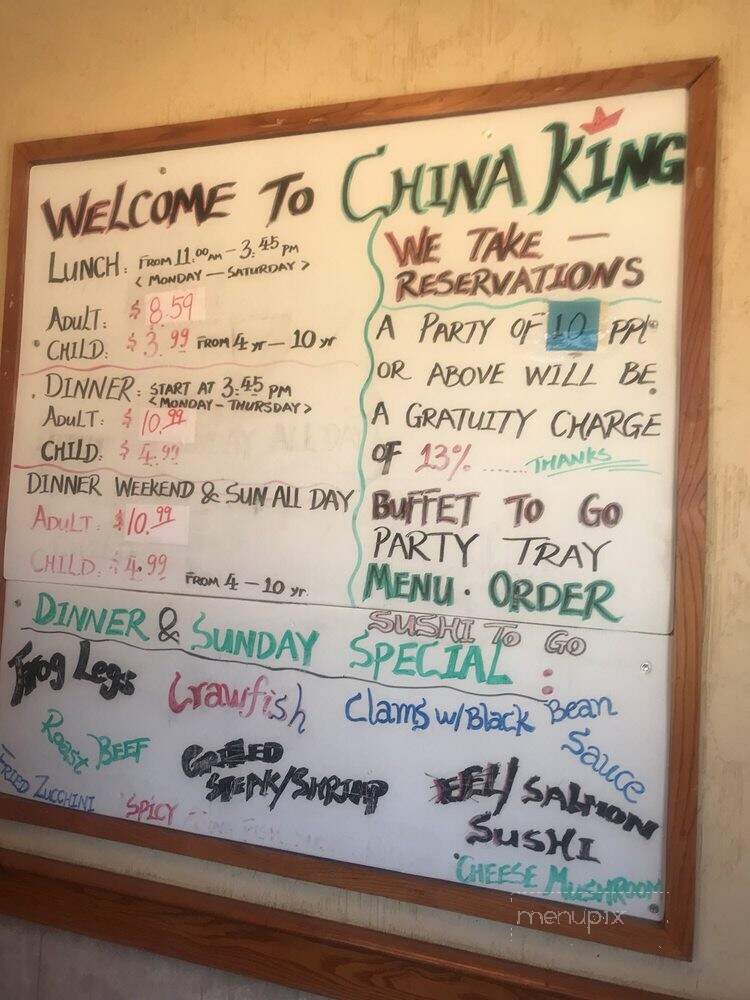 WELCOME TO CHINA KING
LUNCH: FROM 11:00 AM - 3:45 PM
< MONDAY — SATURDAY >
ADULT: $8.59
CHILD: $3.99 FROM 4 yr - 10 yr
DINNER: START AT 3:45 PM
< MONDAY - THURSDAY >
ADULT: $10.99
CHILD: $4.99
DINNER WEEKEND & SUN ALL DAY
ADULT: $10.99
CHILD: $4.99 FROM 4 - 10 yr.
WE TAKE —
RESERVATIONS
A PARTY OF 10 PPL
OR ABOVE WILL BE
A GRATUITY CHARGE
OF 13% ...... THANKS
BUFFET TO GO
PARTY TRAY
MENU · ORDER
SUSHI TO GO
DINNER & SUNDAY SPECIAL:
Frog Legs
Crawfish
Clams w/Black Bean
Sauce
Roast BEEF
GRILLED
STEAK/SHRIMP
EEL/SALMON
SUSHI
FRIED ZUCCHINI
SPICY
CHEESE MUSHROOM
menupix